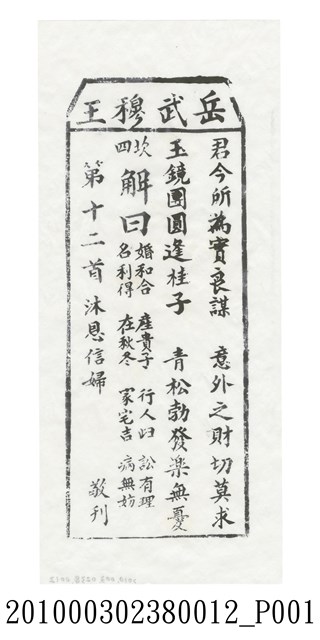 岳武穆王
君今所為實良謀 意外之財切莫求
玉鏡團圓逢桂子 青松勃發樂無憂
坎四
解曰
婚和合 產貴子 行人歸 訟有理
名利得 在秋冬 家宅吉 病無妨
第十二首沐恩信婦 敬刊
201000302380012_P001